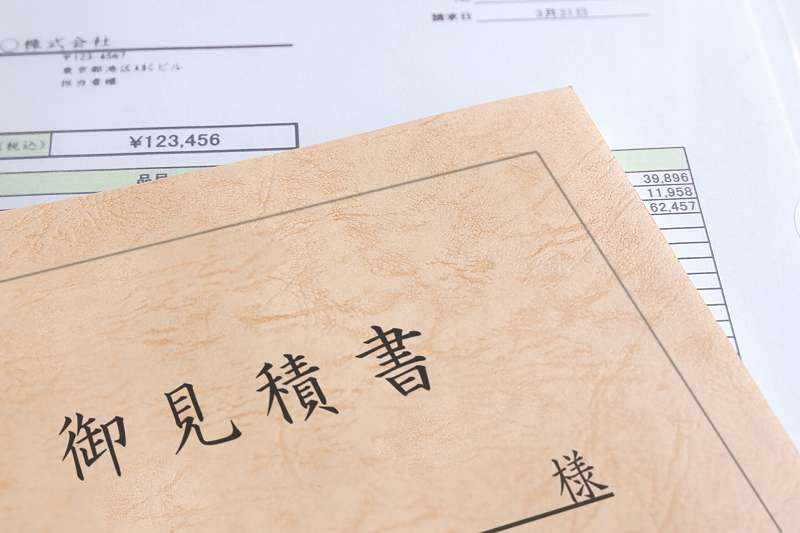 請求日 3月31日
〇株式会社
〒123-4567
東京都港区ABCビル
担当者様
(税込) ¥123,456
品目
39,896
11,958
62,457
御見積書
様